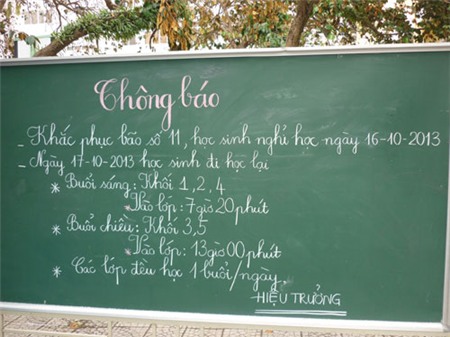 Thông báo
_ Khắc phục bão số 11, học sinh nghỉ học ngày 16-10-2013
_ Ngày 17-10-2013 học sinh đi học lại
* Buổi sáng: Khối 1,2,4
*Vào lớp: 7giờ20phút
* Buổi chiều: Khối 3,5
*Vào lớp: 13giờ00phút
* Các lớp đều học 1buổi/ngày
HIỆU TRƯỞNG